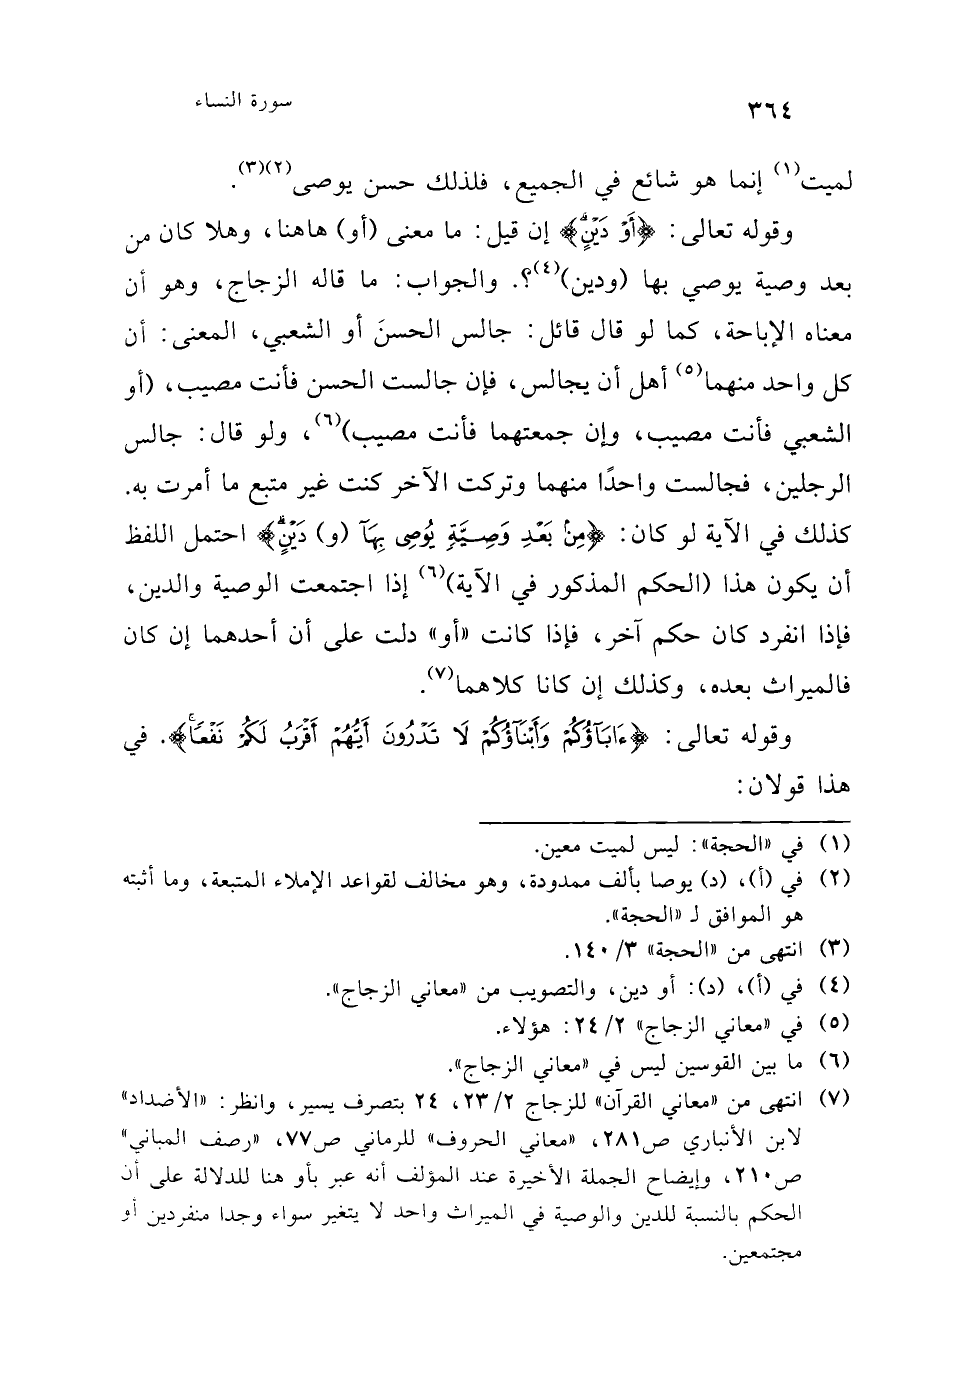 ٣٦٤
سورة النساء
لميت(١) إنما هو شائع في الجميع، فلذلك حسن يوصى(٢)(٣).
وقوله تعالى: ﴿أَوْ دَيْنٍۗ﴾ إن قيل: ما معنى (أو) هاهنا، وهلا كان من
بعد وصية يوصي بها (ودين)(٤)؟. والجواب: ما قاله الزجاج، وهو أن
معناه الإباحة، كما لو قال قائل: جالس الحسنَ أو الشعبي، المعنى: أن
كل واحد منهما(٥) أهل أن يجالس، فإن جالست الحسن فأنت مصيب، (أو
الشعبي فأنت مصيب، وإن جمعتهما فأنت مصيب)(٦)، ولو قال: جالس
الرجلين، فجالست واحدًا منهما وتركت الآخر كنت غير متبع ما أمرت به.
كذلك في الآية لو كان: ﴿مِنۢ بَعْدِ وَصِيَّةٖ يُوصِى بِهَآ (و) دَيْنٍۗ﴾ احتمل اللفظ
أن يكون هذا (الحكم المذكور في الآية)(٦) إذا اجتمعت الوصية والدين،
فإذا انفرد كان حكم آخر، فإذا كانت «أو» دلت على أن أحدهما إن كان
فالميراث بعده، وكذلك إن كانا كلاهما(٧).
وقوله تعالى: ﴿ءَابَآؤُكُمْ وَأَبْنَآؤُكُمْ لَا تَدْرُونَ أَيُّهُمْ أَقْرَبُ لَكُمْ نَفْعًاۚ﴾. في
هذا قولان:
(١) في «الحجة»: ليس لميت معين.
(٢) في (أ)، (د) يوصا بألف ممدودة، وهو مخالف لقواعد الإملاء المتبعة، وما أثبته
هو الموافق لـ «الحجة».
(٣) انتهى من «الحجة» ٣/ ١٤٠.
(٤) في (أ)، (د): أو دين، والتصويب من «معاني الزجاج».
(٥) في «معاني الزجاج» ٢/ ٢٤: هؤلاء.
(٦) ما بين القوسين ليس في «معاني الزجاج».
(٧) انتهى من «معاني القرآن» للزجاج ٢/ ٢٣، ٢٤ بتصرف يسير، وانظر: «الأضداد»
لابن الأنباري ص٢٨١، «معاني الحروف» للرماني ص٧٧، «رصف المباني»
ص٢١٠، وإيضاح الجملة الأخيرة عند المؤلف أنه عبر بأو هنا للدلالة على أن
الحكم بالنسبة للدين والوصية في الميراث واحد لا يتغير سواء وجدا منفردين أو
مجتمعين.